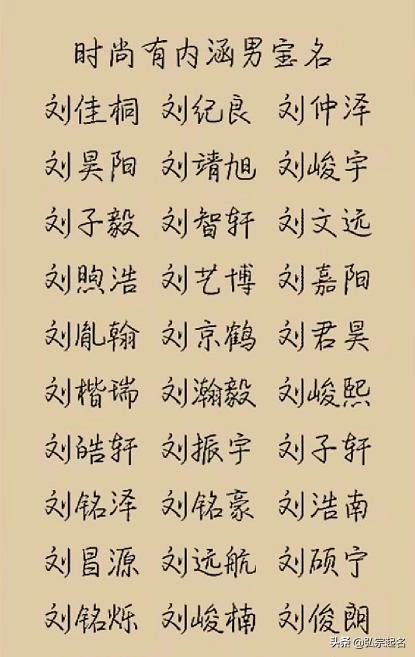 时尚有内涵男宝名
刘佳桐 刘纪良 刘仲泽
刘昊阳 刘靖旭 刘峻宇
刘子毅 刘智轩 刘文远
刘煦浩 刘艺博 刘嘉阳
刘胤翰 刘京鹤 刘君昊
刘楷瑞 刘瀚毅 刘峻熙
刘皓轩 刘振宇 刘子轩
刘铭泽 刘铭豪 刘浩南
刘昌源 刘远航 刘硕宁
刘铭烁 刘峻楠 刘俊朗
头条 @弘宗起名